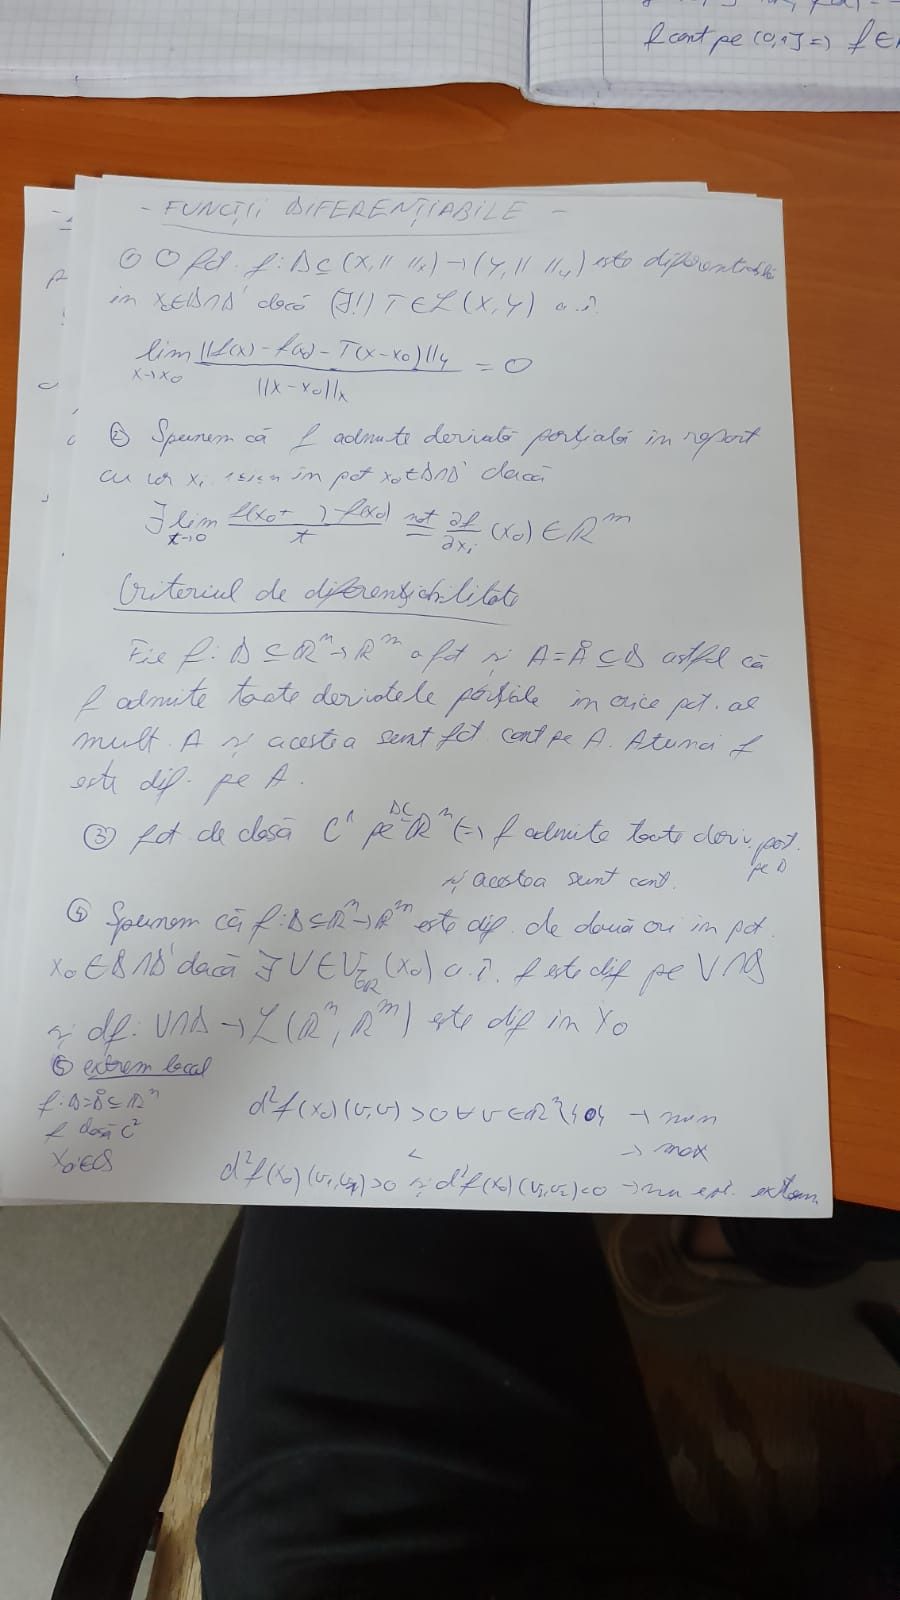 f cont pe (0,1] => f ∈
- FUNCȚII DIFERENȚIABILE -
① O fct. f: D ⊆ (X, || ||x) → (Y, || ||y) este diferentiabilă
in x₀∈D∩D' dacă (∃!) T ∈ L(X,Y) a.î.
lim x→x₀ ||f(x) - f(x₀) - T(x-x₀)||y / ||x-x₀||x = 0
② Spunem că f admite derivată parțială in raport
cu xi in pct x₀∈D∩D' dacă
∃ lim t→0 f(x₀+ ) - f(x₀) / t not = ∂f/∂xi (x₀) ∈ ℝᵐ
Criteriul de diferențiabilitate
Fie f: D ⊆ ℝⁿ → ℝᵐ o fct și A = Å ⊆ D astfel că
f admite toate derivatele parțiale in orice pct. al
mult. A și acestea sunt fct. cont pe A. Atunci f
este dif. pe A.
③ fct de clasă C¹ pe D⊆ℝⁿ (=) f admite toate deriv. parț. pe D
și acestea sunt cont.
④ Spunem că f: D⊆ℝⁿ→ℝᵐ este dif. de două ori in pct.
x₀ ∈ D∩D' dacă ∃ V ∈ V (x₀) a.î. f este dif pe V∩D
și df: V∩D → L(ℝⁿ, ℝᵐ) este dif in x₀
⑤ extrem local
f: D=D̊⊆ℝⁿ
f clasă C²
x₀∈D
d²f(x₀)(v,v) > 0 ∀ v ∈ ℝⁿ\{0} → min
< → max
d²f(x₀)(v₁,v₁)>0 și d²f(x₀)(v₂,v₂)<0 → nu extrem